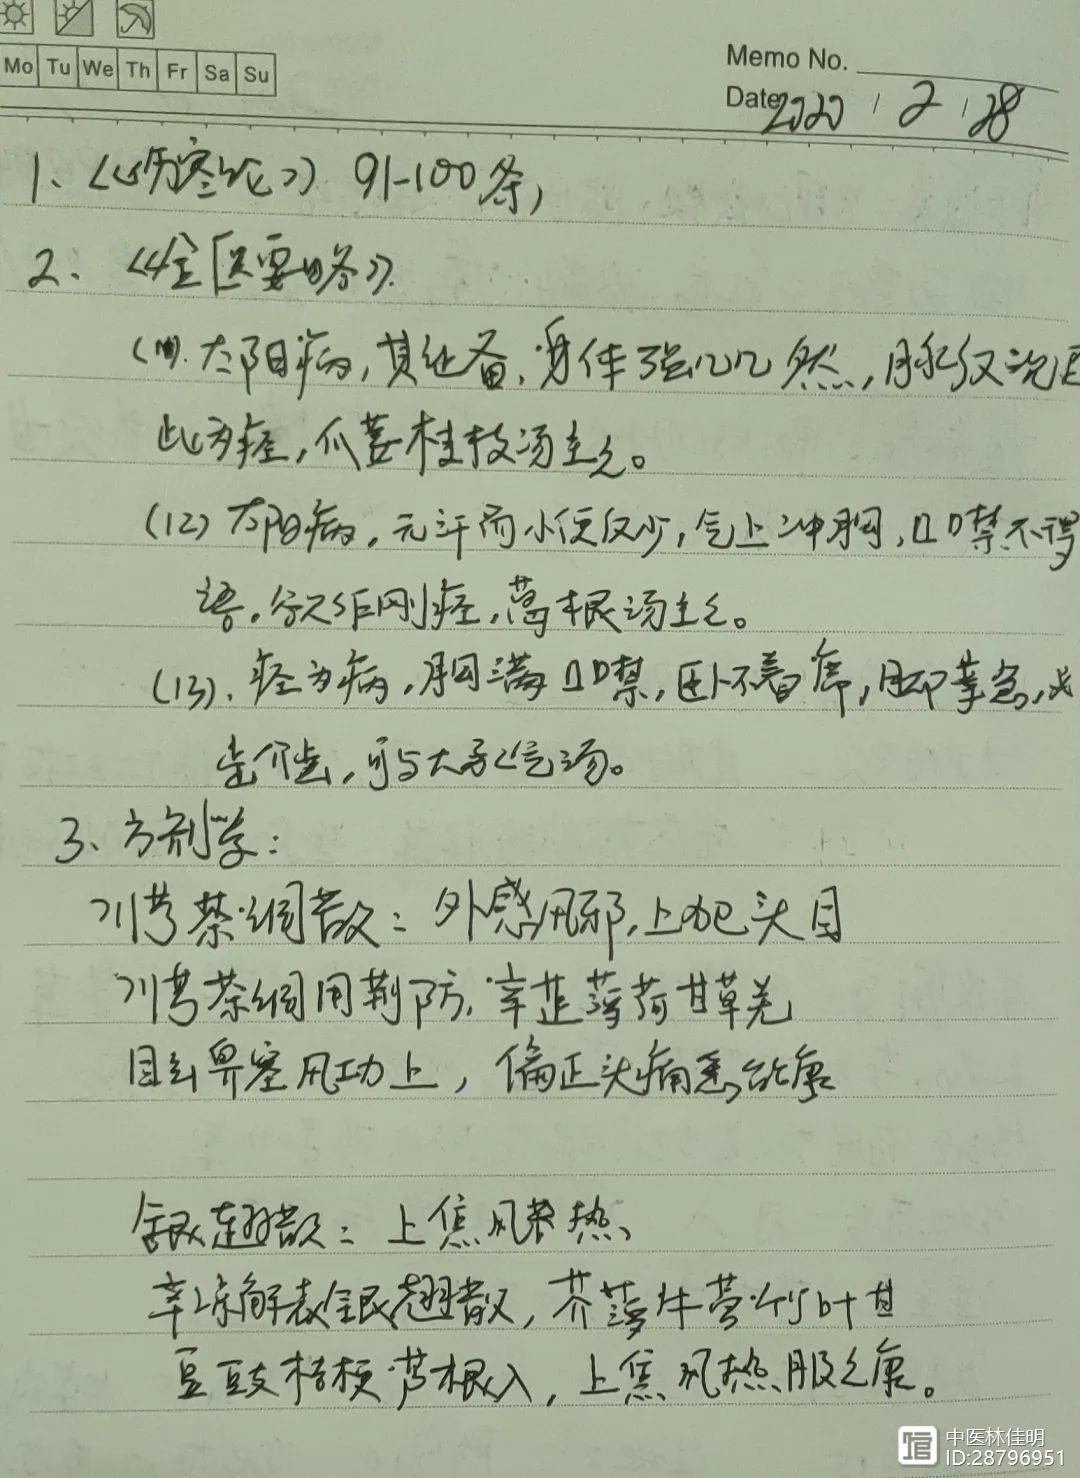 Mo Tu We Th Fr Sa Su
Memo No.
Date 2020 / 2 / 28
1、《伤寒论》91-100条,
2、《金匮要略》.
(11).太阳病,其证备,身体强几几然,脉仅沉
此为痉,瓜蒌桂枝汤主之。
(12)太阳病,无汗而小便仅少,气上冲胸,口噤不得
语,欲作刚痉,葛根汤主之。
(13).痉为病,胸满口噤,卧不着席,脚挛急,必
齿介齿,可与大承气汤。
3、方剂学:
川芎茶调散:外感风邪,上犯头目
川芎茶调用荆防,辛芷薄荷甘草羌
目玄鼻塞风功上,偏正头痛悉能康
银翘散:上焦风热、
辛凉解表银翘散,芥薄牛蒡竹叶甘
豆豉桔梗芦根入,上焦风热服之康。
中医林佳明
ID:28796951